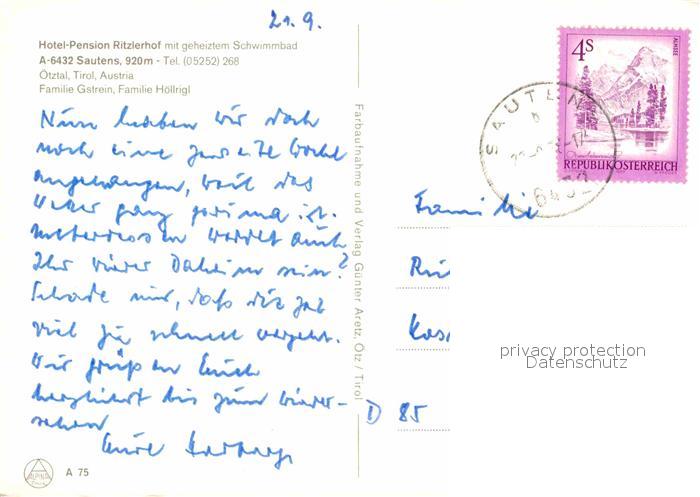 21.9.
Hotel-Pension Ritzlerhof mit geheiztem Schwimmbad
A-6432 Sautens, 920m - Tel. (05252) 268
Ötztal, Tirol, Austria
Familie Gstrein, Familie Höllrigl
Nun haben wir doch
noch eine zweite Woche
angehangen, weil das
Wetter ganz prima ist.
Unterdessen werdet auch
Ihr wieder Daheim sein?
Schade nur, daß die Zeit
viel zu schnell vergeht.
Wir grüßen Euch
herzlichst bis zum Wieder-
sehen
Eure
Farbaufnahme und Verlag Günter Aretz, Ötz / Tirol
4S
ALMSEE
REPUBLIK ÖSTERREICH
SAUTENS
6432
Familie
D 85
privacy protection
Datenschutz
ALPINA
A 75